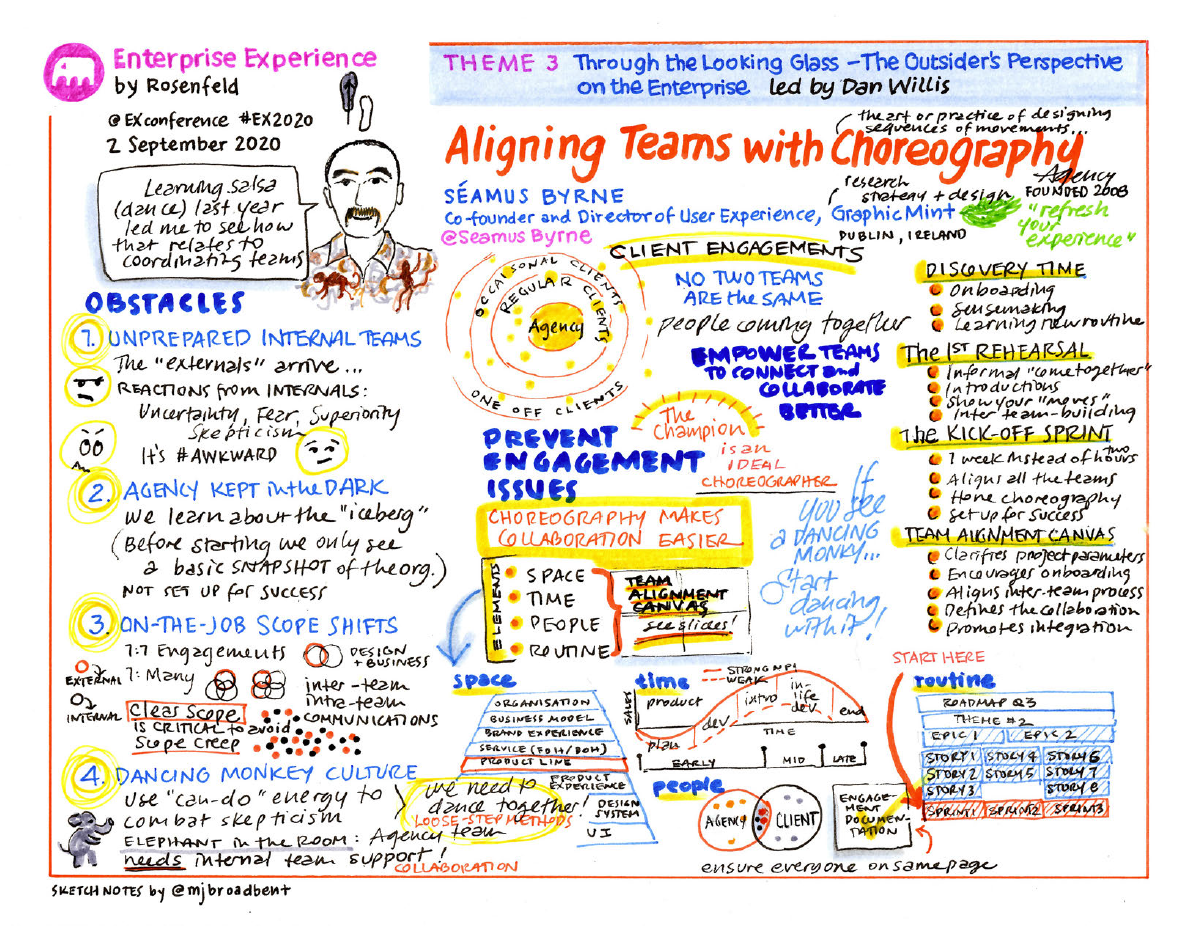 Enterprise Experience
by Rosenfeld
@EXconference #EX2020
2 September 2020
Learning salsa
(dance) last year
led me to see how
that relates to
coordinating teams
THEME 3 Through the Looking Glass – The Outsider's Perspective
on the Enterprise led by Dan Willis
the art or practice of designing
sequences of movements...
Aligning Teams with Choreography
SÉAMUS BYRNE
Co-founder and Director of User Experience, Graphic Mint
@Seamus Byrne
research
strategy + design
Agency
FOUNDED 2008
DUBLIN, IRELAND
"refresh
your
experience"
OBSTACLES
1. UNPREPARED INTERNAL TEAMS
The "externals" arrive...
REACTIONS from INTERNALS:
Uncertainty, Fear, Superiority
Skepticism
It's #AWKWARD
2. AGENCY KEPT in the DARK
We learn about the "iceberg"
(Before starting we only see
a basic SNAPSHOT of the org.)
NOT SET UP for SUCCESS
3. ON-THE-JOB SCOPE SHIFTS
1:1 Engagements
DESIGN
+ BUSINESS
EXTERNAL
1: Many
inter-team
intra-team
COMMUNICATIONS
INTERNAL
Clear Scope
IS CRITICAL to avoid
Scope creep
4. DANCING MONKEY CULTURE
Use "can-do" energy to
combat skepticism
ELEPHANT in the ROOM: Agency team
needs internal team support!
We need to
dance together!
LOOSE-STEP METHODS
COLLABORATION
OCCAISONAL CLIENTS
REGULAR CLIENTS
Agency
ONE OFF CLIENTS
CLIENT ENGAGEMENTS
NO TWO TEAMS
ARE the SAME
people coming together
EMPOWER TEAMS
TO CONNECT and
COLLABORATE
BETTER
The
Champion
is an
IDEAL
CHOREOGRAPHER
PREVENT
ENGAGEMENT
ISSUES
CHOREOGRAPHY MAKES
COLLABORATION EASIER
ELEMENTS
SPACE
TIME
PEOPLE
ROUTINE
TEAM
ALIGNMENT
CANVAS
see slides!
If
you see
a DANCING
MONKY...
Start
dancing
with it!
DISCOVERY TIME
Onboarding
Sensemaking
Learning new routine
The 1ST REHEARSAL
Informal "come together"
Introductions
Show your "moves"
Inter team-building
The KICK-OFF SPRINT
1 week instead of two hours
Aligns all the teams
Hone choreography
Set up for success
TEAM ALIGNMENT CANVAS
Clarifies project parameters
Encourages onboarding
Aligns inter-team process
Defines the collaboration
Promotes integration
space
ORGANISATION
BUSINESS MODEL
BRAND EXPERIENCE
SERVICE (FOH/BOH)
PRODUCT LINE
PRODUCT
EXPERIENCE
DESIGN
SYSTEM
UI
time
STRONG
WEAK
SALES
product
plan
dev
intro
in-
life
dev
end
TIME
EARLY
MID
LATE
people
AGENCY
CLIENT
ENGAGE-
MENT
DOCUMEN-
TATION
ensure everyone on same page
START HERE
routine
ROADMAP Q3
THEME #2
EPIC 1 EPIC 2
STORY 1 STORY 4 STORY 6
STORY 2 STORY 5 STORY 7
STORY 3 STORY 8
SPRINT 1 SPRINT 2 SPRINT 3
SKETCHNOTES by @mjbroadbent